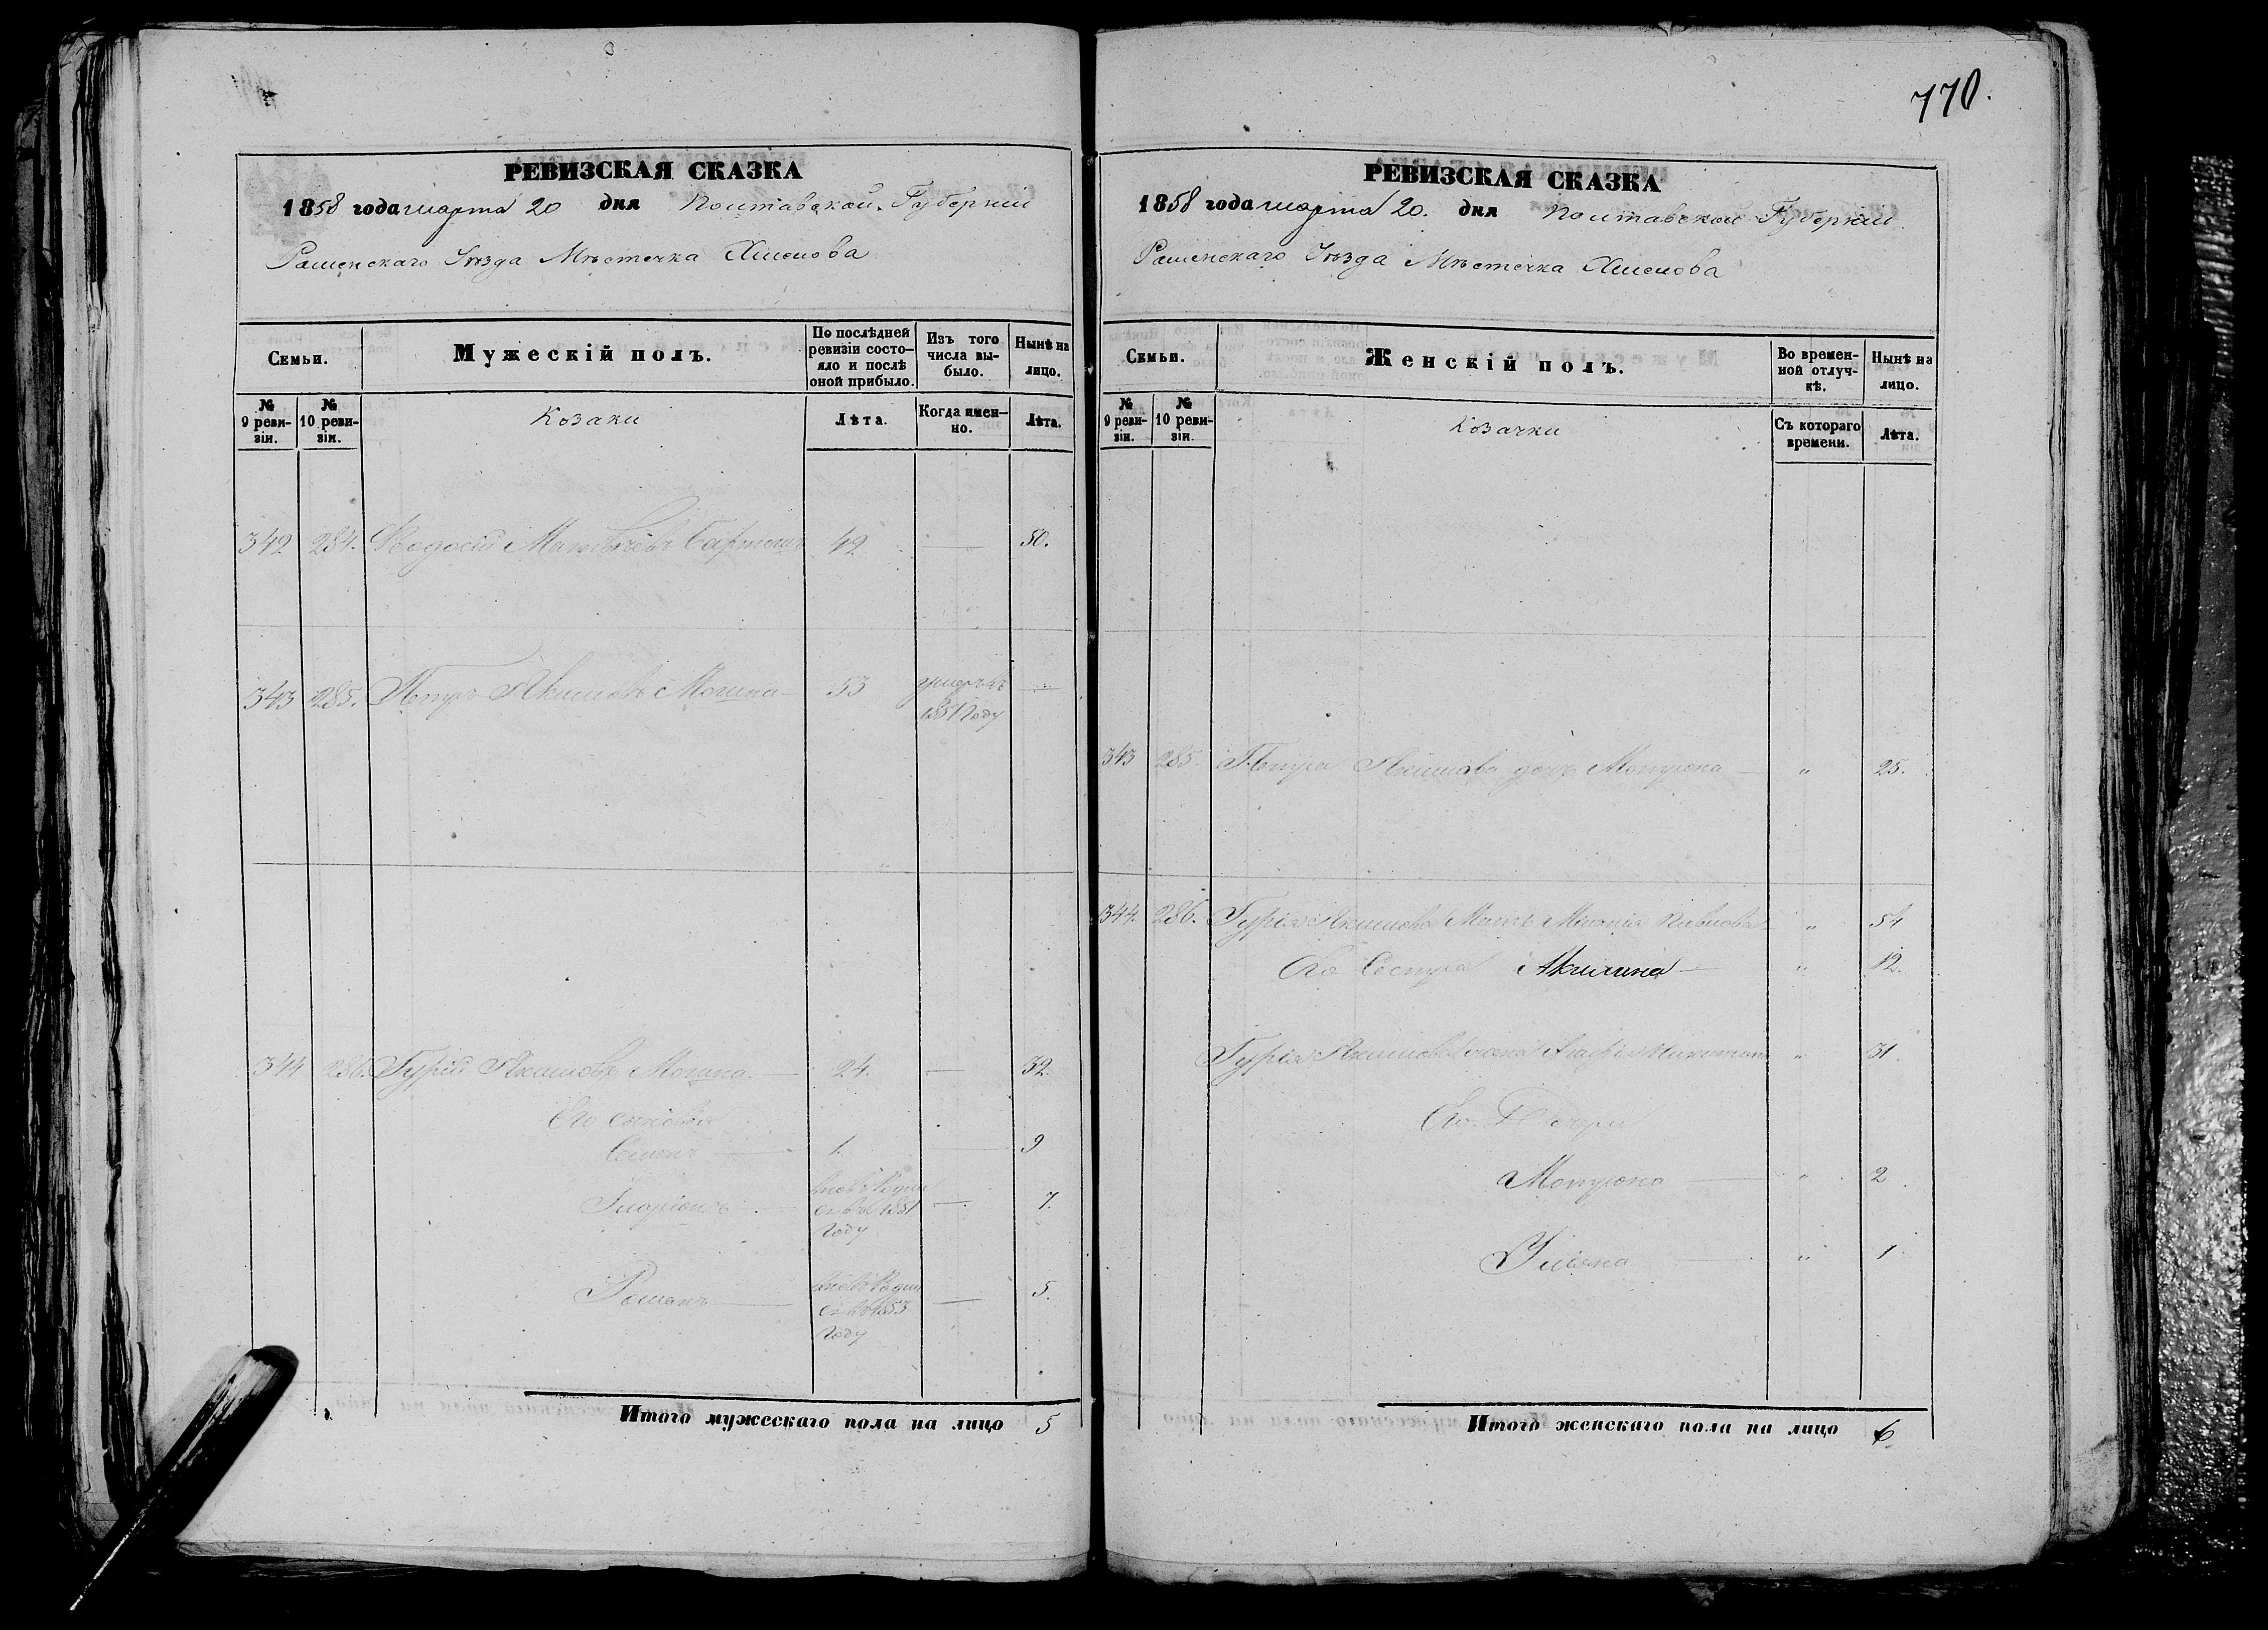 770.
РЕВИЗСКАЯ СКАЗКА
1858 года марта 20 дня Полтавской Губернии
Роменскаго Уѣзда Мѣстечка Хмелова
Семьи.
Мужескій полъ.
По послѣдней ревизіи состояло и послѣ оной прибыло.
Изъ того числа выбыло.
Нынѣ на лицо.
№ 9 ревизіи.
№ 10 ревизіи.
Козаки
Лѣта.
Когда именно.
Лѣта.
342 284. Федосій 42 — 50.
343 285. Петръ Якимовъ Могила 53 умеръ въ 1851 Году —
344 286. Гурій Якимовъ Могила 24. — 32.
Его сыновья
Семенъ 1. — 9
Иларіонъ вновь Родился въ 1851 Году — 7.
Романъ вновь Родился въ 1853 Году — 5.
Итого мужескаго пола на лицо 5
РЕВИЗСКАЯ СКАЗКА
1858 года марта 20. дня Полтавской Губерніи
Роменскаго Уѣзда Мѣстечка Хмелова
Семьи.
Женскій полъ.
Во временной отлучкѣ.
Нынѣ на лицо.
№ 9 ревизіи.
№ 10 ревизіи.
Козачки
Съ котораго времени.
Лѣта.
343 285. Петра Якимова дочь Мотрона — „ 25.
344. 286. Гурія Якимова Мать Павлова „ 54
Его Сестра Акилина — „ 12.
Гурія Якимова жена Агафія „ 31.
Его Дочери
Мотрона — „ 2.
Ульяна — „ 1
Итого женскаго пола на лицо 6